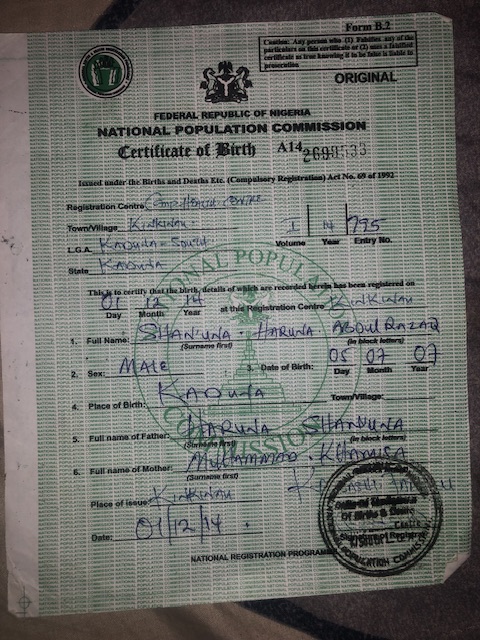 Form B.2
Caution: Any person who (1) Falsifies any of the
particulars on this certificate or (2) uses a falsified
certificate as true knowing it to be false is liable to
prosecution
ORIGINAL
FEDERAL REPUBLIC OF NIGERIA
NATIONAL POPULATION COMMISSION
Certificate of Birth A14
Issued under the Births and Deaths Etc. (Compulsory Registration) Act No. 69 of 1992
Registration Centre Comp. Health Centre
Town/Village Kinkinau
I 14 795
L.G.A. Kaduna - South Volume Year Entry No.
State Kaduna
NATIONAL POPULATION
COMMISSION
This is to certify that the birth, details of which are recorded herein has been registered on
01 12 14 at this Registration Centre Kinkinau
Day Month Year
1. Full Name: SHAN'UNA - HARUNA ABDULRAZAQ
(Surname first) (in block letters)
2. Sex: MALE 3. Date of Birth: 05 07 07
Day Month Year
4. Place of Birth: KADUNA Town/Village:
5. Full name of Father: HARUNA SHAN'UNA
(Surname first) (in block letters)
6. Full name of Mother: MUHAMMAD KHAMISA
(Surname first)
Place of issue: Kinkinau
Date: 01/12/14
NATIONAL REGISTRATION PROGRAMME
POPULATION COMMISSION